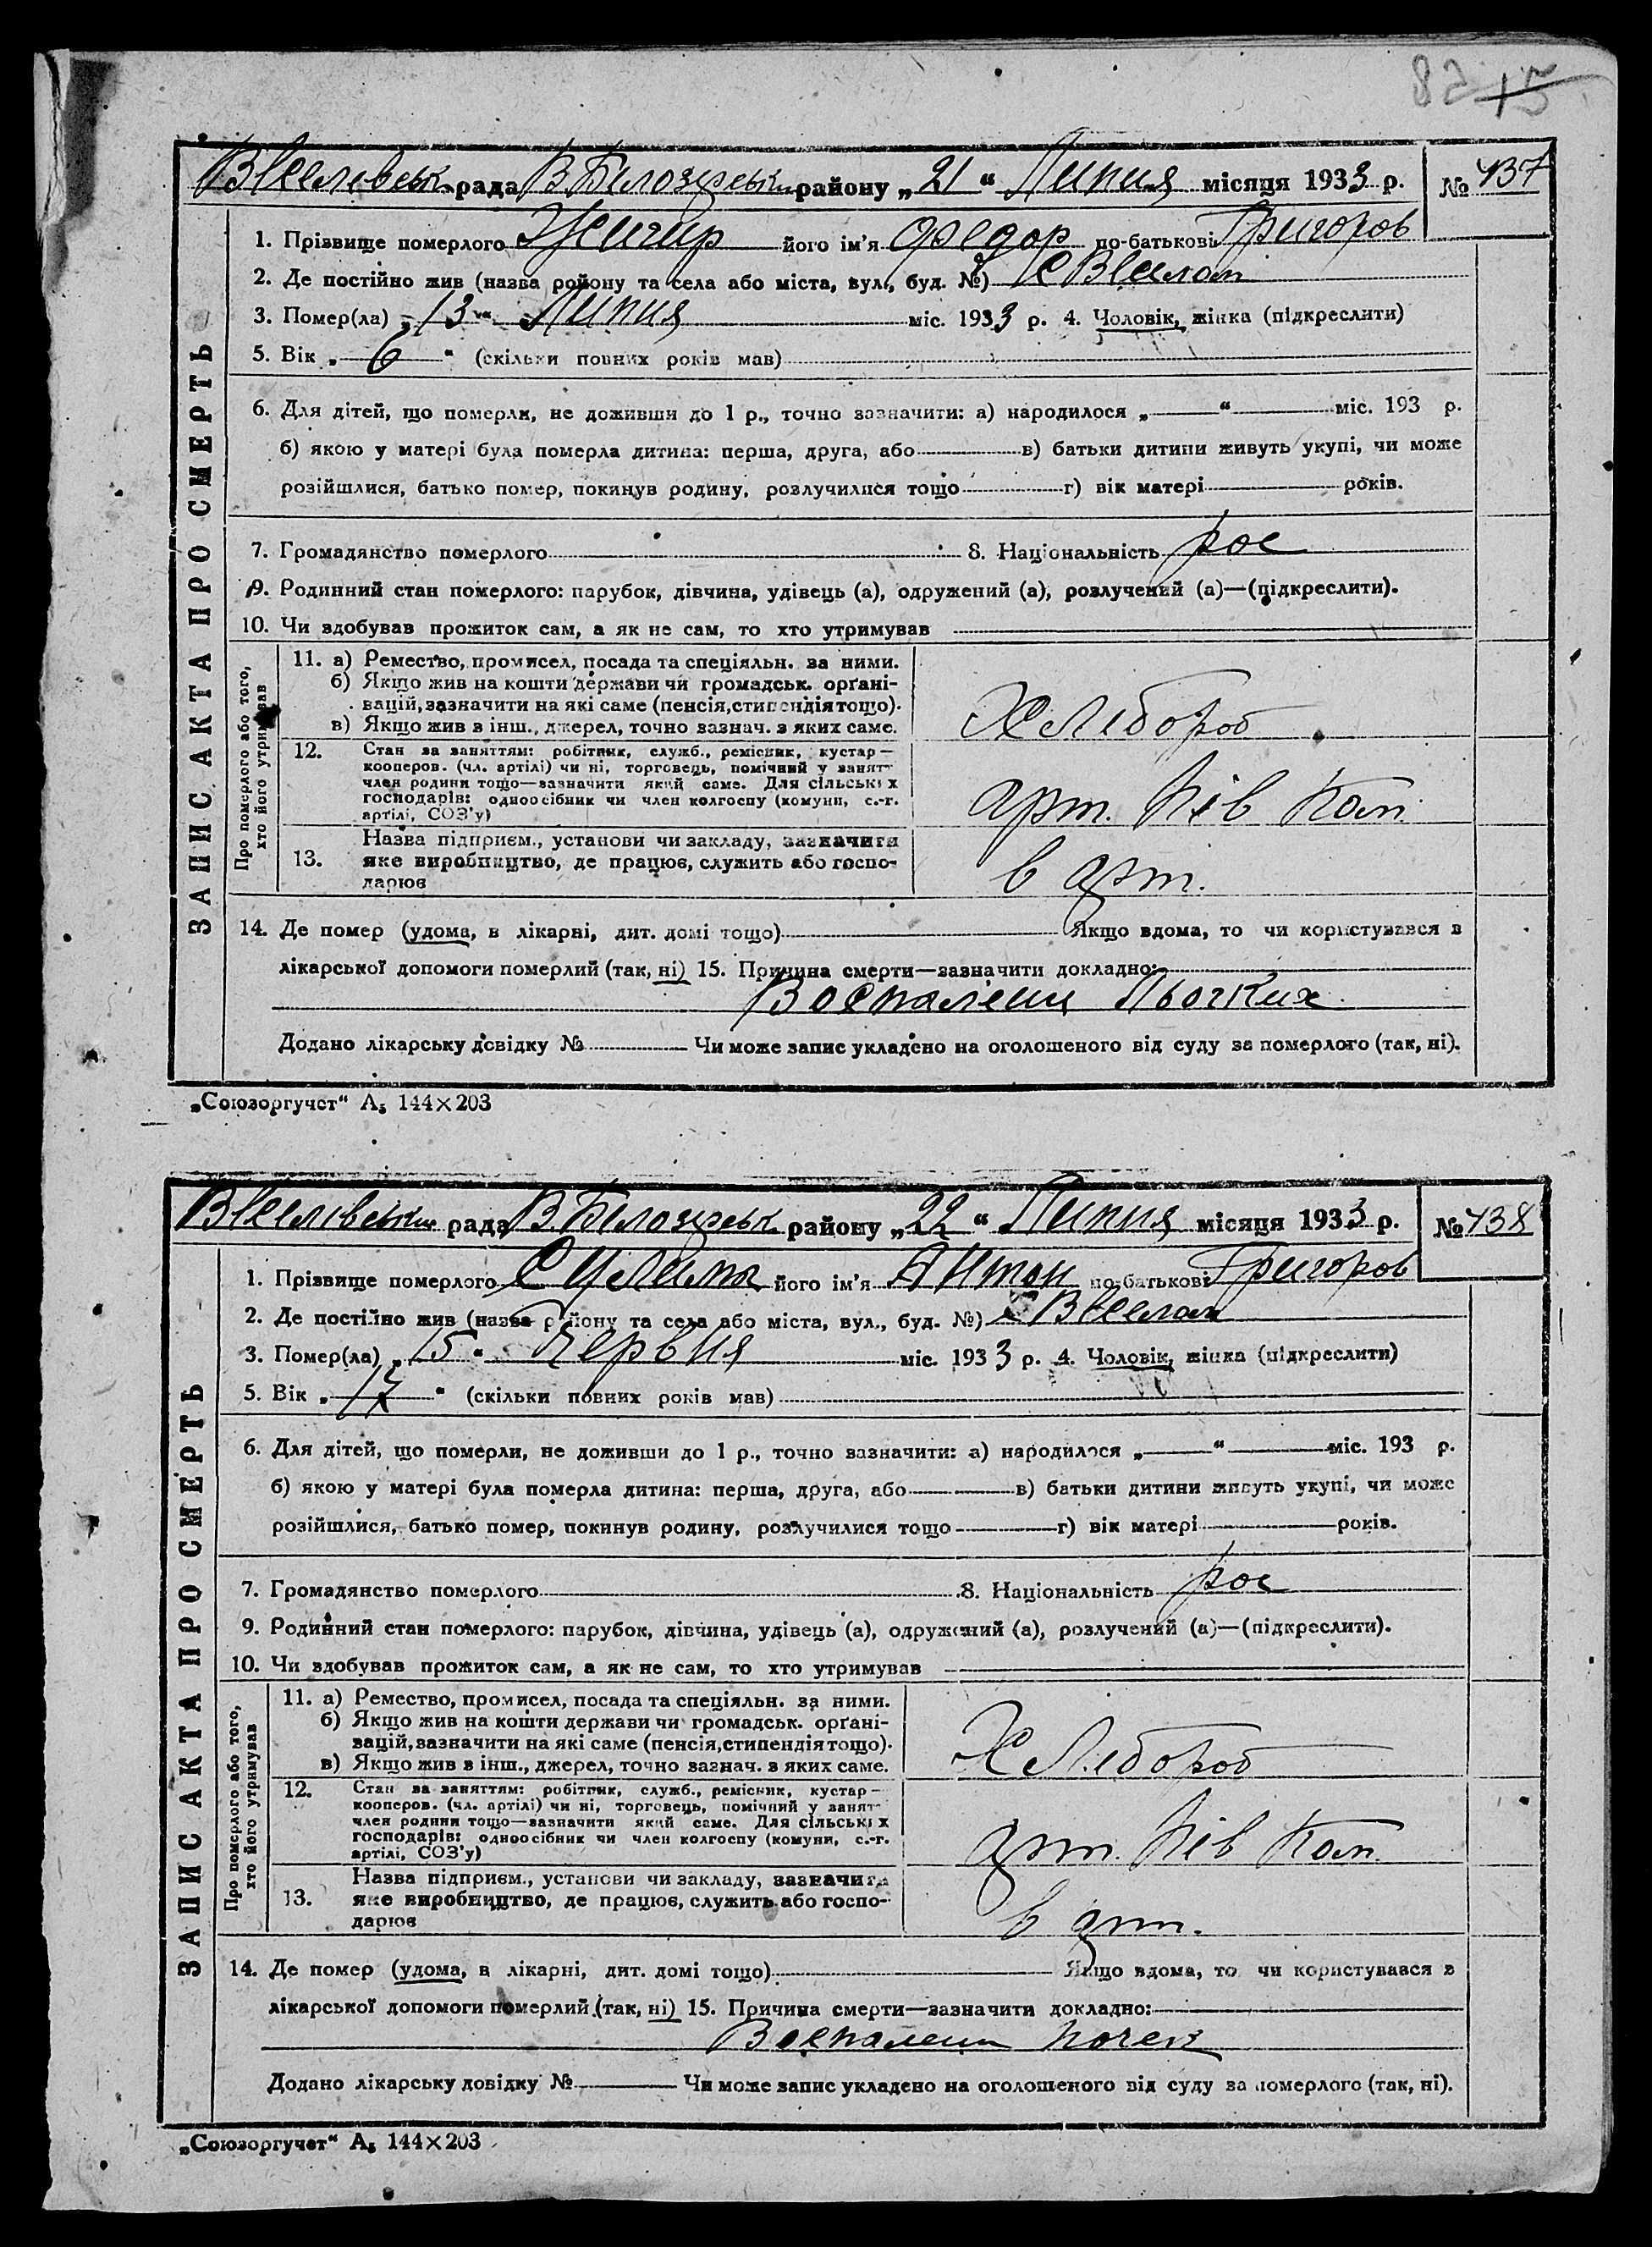 82 15
рада В.Білозерськ району „21“ Липня місяця 1933 р. № 437
1. Прізвище померлого його ім'я Федор по-батькові Григоров
2. Де постійно жив (назва району та села або міста, вул., буд. №) с
3. Помер(ла) „13“ Липня міс. 1933 р. 4. Чоловік, жінка (підкреслити)
5. Вік „6“ (скільки повних років мав)
6. Для дітей, що померли, не доживши до 1 р., точно зазначити: а) народилося „ “ міс. 193 р.
б) якою у матері була померла дитина: перша, друга, або в) батьки дитини живуть укупі, чи може
розійшлися, батько помер, покинув родину, розлучилися тощо г) вік матері років.
7. Громадянство померлого 8. Національність рос
9. Родинний стан померлого: парубок, дівчина, удівець (а), одружений (а), розлучений (а)—(підкреслити).
10. Чи здобував прожиток сам, а як не сам, то хто утримував
ЗАПИС АКТА ПРО СМЕРТЬ
Про померлого або того,
хто його утримував
11. а) Ремество, промисел, посада та спеціяльн. за ними.
б) Якщо жив на кошти держави чи громадськ. орґані-
зацій, зазначити на які саме (пенсія, стипендія тощо).
в) Якщо жив з інш., джерел, точно зазнач. з яких саме.
Хлібороб
12. Стан за заняттям: робітник, служб., ремісник, кустар—
кооперов. (чл. артілі) чи ні, торговець, помічний у занятт
член родини тощо—зазначити який саме. Для сільських
господарів: одноосібник чи член колгоспу (комуни, с.-г.
артілі, СОЗ'у)
арт.
13. Назва підприєм., установи чи закладу, зазначити
яке виробництво, де працює, служить або госпо-
дарює
в арт.
14. Де помер (удома, в лікарні, дит. домі тощо) Якщо вдома, то чи користувався з
лікарської допомоги померлий (так, ні) 15. Причина смерти—зазначити докладно:
Воспалени Льогких
Додано лікарську довідку № Чи може запис укладено на оголошеного від суду за померлого (так, ні).
„Союзоргучет“ А5 144×203
рада В.Білозерськ району „22“ Липня місяця 1933 р. № 438
1. Прізвище померлого його ім'я Антон по-батькові Григоров
2. Де постійно жив (назва району та села або міста, вул., буд. №) с
3. Помер(ла) „15“ Червня міс. 1933 р. 4. Чоловік, жінка (підкреслити)
5. Вік „17“ (скільки повних років мав)
6. Для дітей, що померли, не доживши до 1 р., точно зазначити: а) народилося „ “ міс. 193 р.
б) якою у матері була померла дитина: перша, друга, або в) батьки дитини живуть укупі, чи може
розійшлися, батько помер, покинув родину, розлучилися тощо г) вік матері років.
7. Громадянство померлого 8. Національність рос
9. Родинний стан померлого: парубок, дівчина, удівець (а), одружений (а), розлучений (а)—(підкреслити).
10. Чи здобував прожиток сам, а як не сам, то хто утримував
ЗАПИС АКТА ПРО СМЕРТЬ
Про померлого або того,
хто його утримував
11. а) Ремество, промисел, посада та спеціяльн. за ними.
б) Якщо жив на кошти держави чи громадськ. орґані-
зацій, зазначити на які саме (пенсія, стипендія тощо).
в) Якщо жив з інш., джерел, точно зазнач. з яких саме.
Хлібороб
12. Стан за заняттям: робітник, служб., ремісник, кустар—
кооперов. (чл. артілі) чи ні, торговець, помічний у занят
член родини тощо—зазначити який саме. Для сільських
господарів: одноосібник чи член колгоспу (комуни, с.-г.
артілі, СОЗ'у)
арт.
13. Назва підприєм., установи чи закладу, зазначити
яке виробництво, де працює, служить або госпо-
дарює
в арт.
14. Де помер (удома, в лікарні, дит. домі тощо) Якщо вдома, то чи користувався з
лікарської допомоги померлий (так, ні) 15. Причина смерти—зазначити докладно:
Воспалени почек
Додано лікарську довідку № Чи може запис укладено на оголошеного від суду за померлого (так, ні).
„Союзоргучет“ А5 144×203